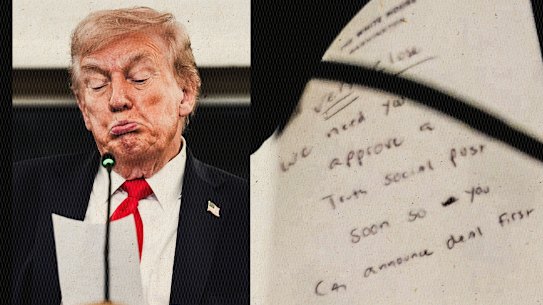 THE WHITE HOUSE
Very close
we need you
approve a
Truth Social post
Soon so you
Can announce deal first